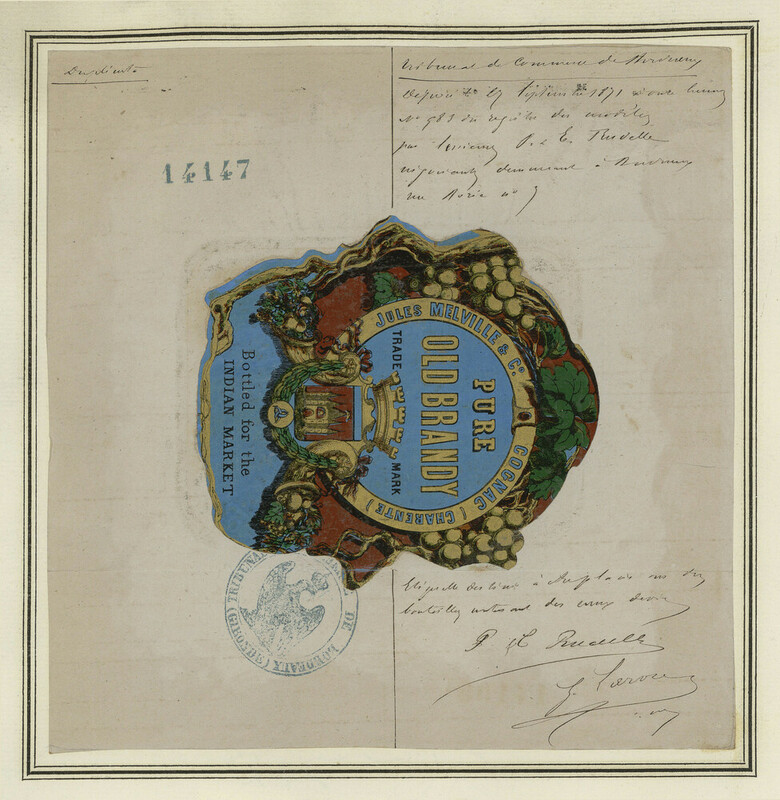 Duplicata
Tribunal de Commerce de Bordeaux
Déposé le 27 Septembre 1871 à onze heures
N° 983 du registre des modèles
par Messieurs P. & E. Rudelle
négociants demeurant à Bordeaux
rue
14147
JULES MELVILLE & Co COGNAC (CHARENTE)
PURE
OLD BRANDY
TRADE MARK
Bottled for the
INDIAN MARKET
TRIBUNAL DE BORDEAUX (GIRONDE)
Etiquette destinée à être placée sur des
bouteilles contenant des eaux de vie
P. & E. Rudelle